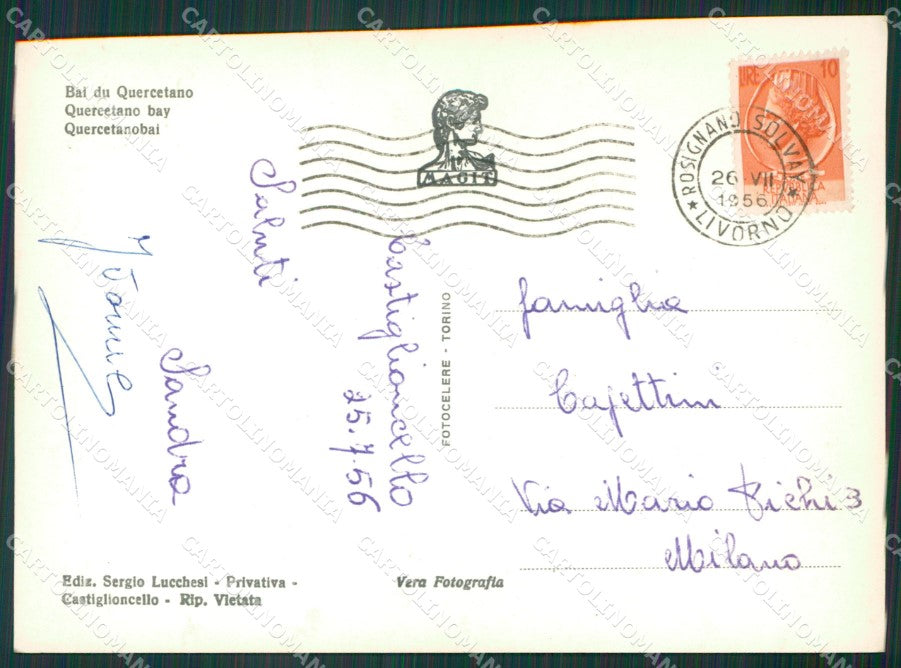 Bai du Quercetano
Quercetano bay
Quercetanobai
MAGIT
LIRE 10
REPUBBLICA
ITALIANA
ROSIGNANO SOLVAY
26 VII
1956
LIVORNO
Castiglioncello
25.7.56
Saluti
Sandra
FOTOCELERE - TORINO
famiglia
Cajettini
Via Mario Pichi 3
Milano
Ediz. Sergio Lucchesi - Privativa -
Castiglioncello - Rip. Vietata
Vera Fotografia
CARTOLINOMANIA